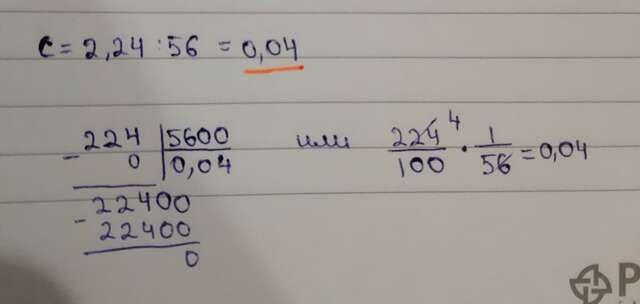 c = 2,24 : 56 = 0,04
- 224 | 5600
0 | 0,04
- 22400
22400
0
или 224/100 · 1/56 = 0,04
4
P